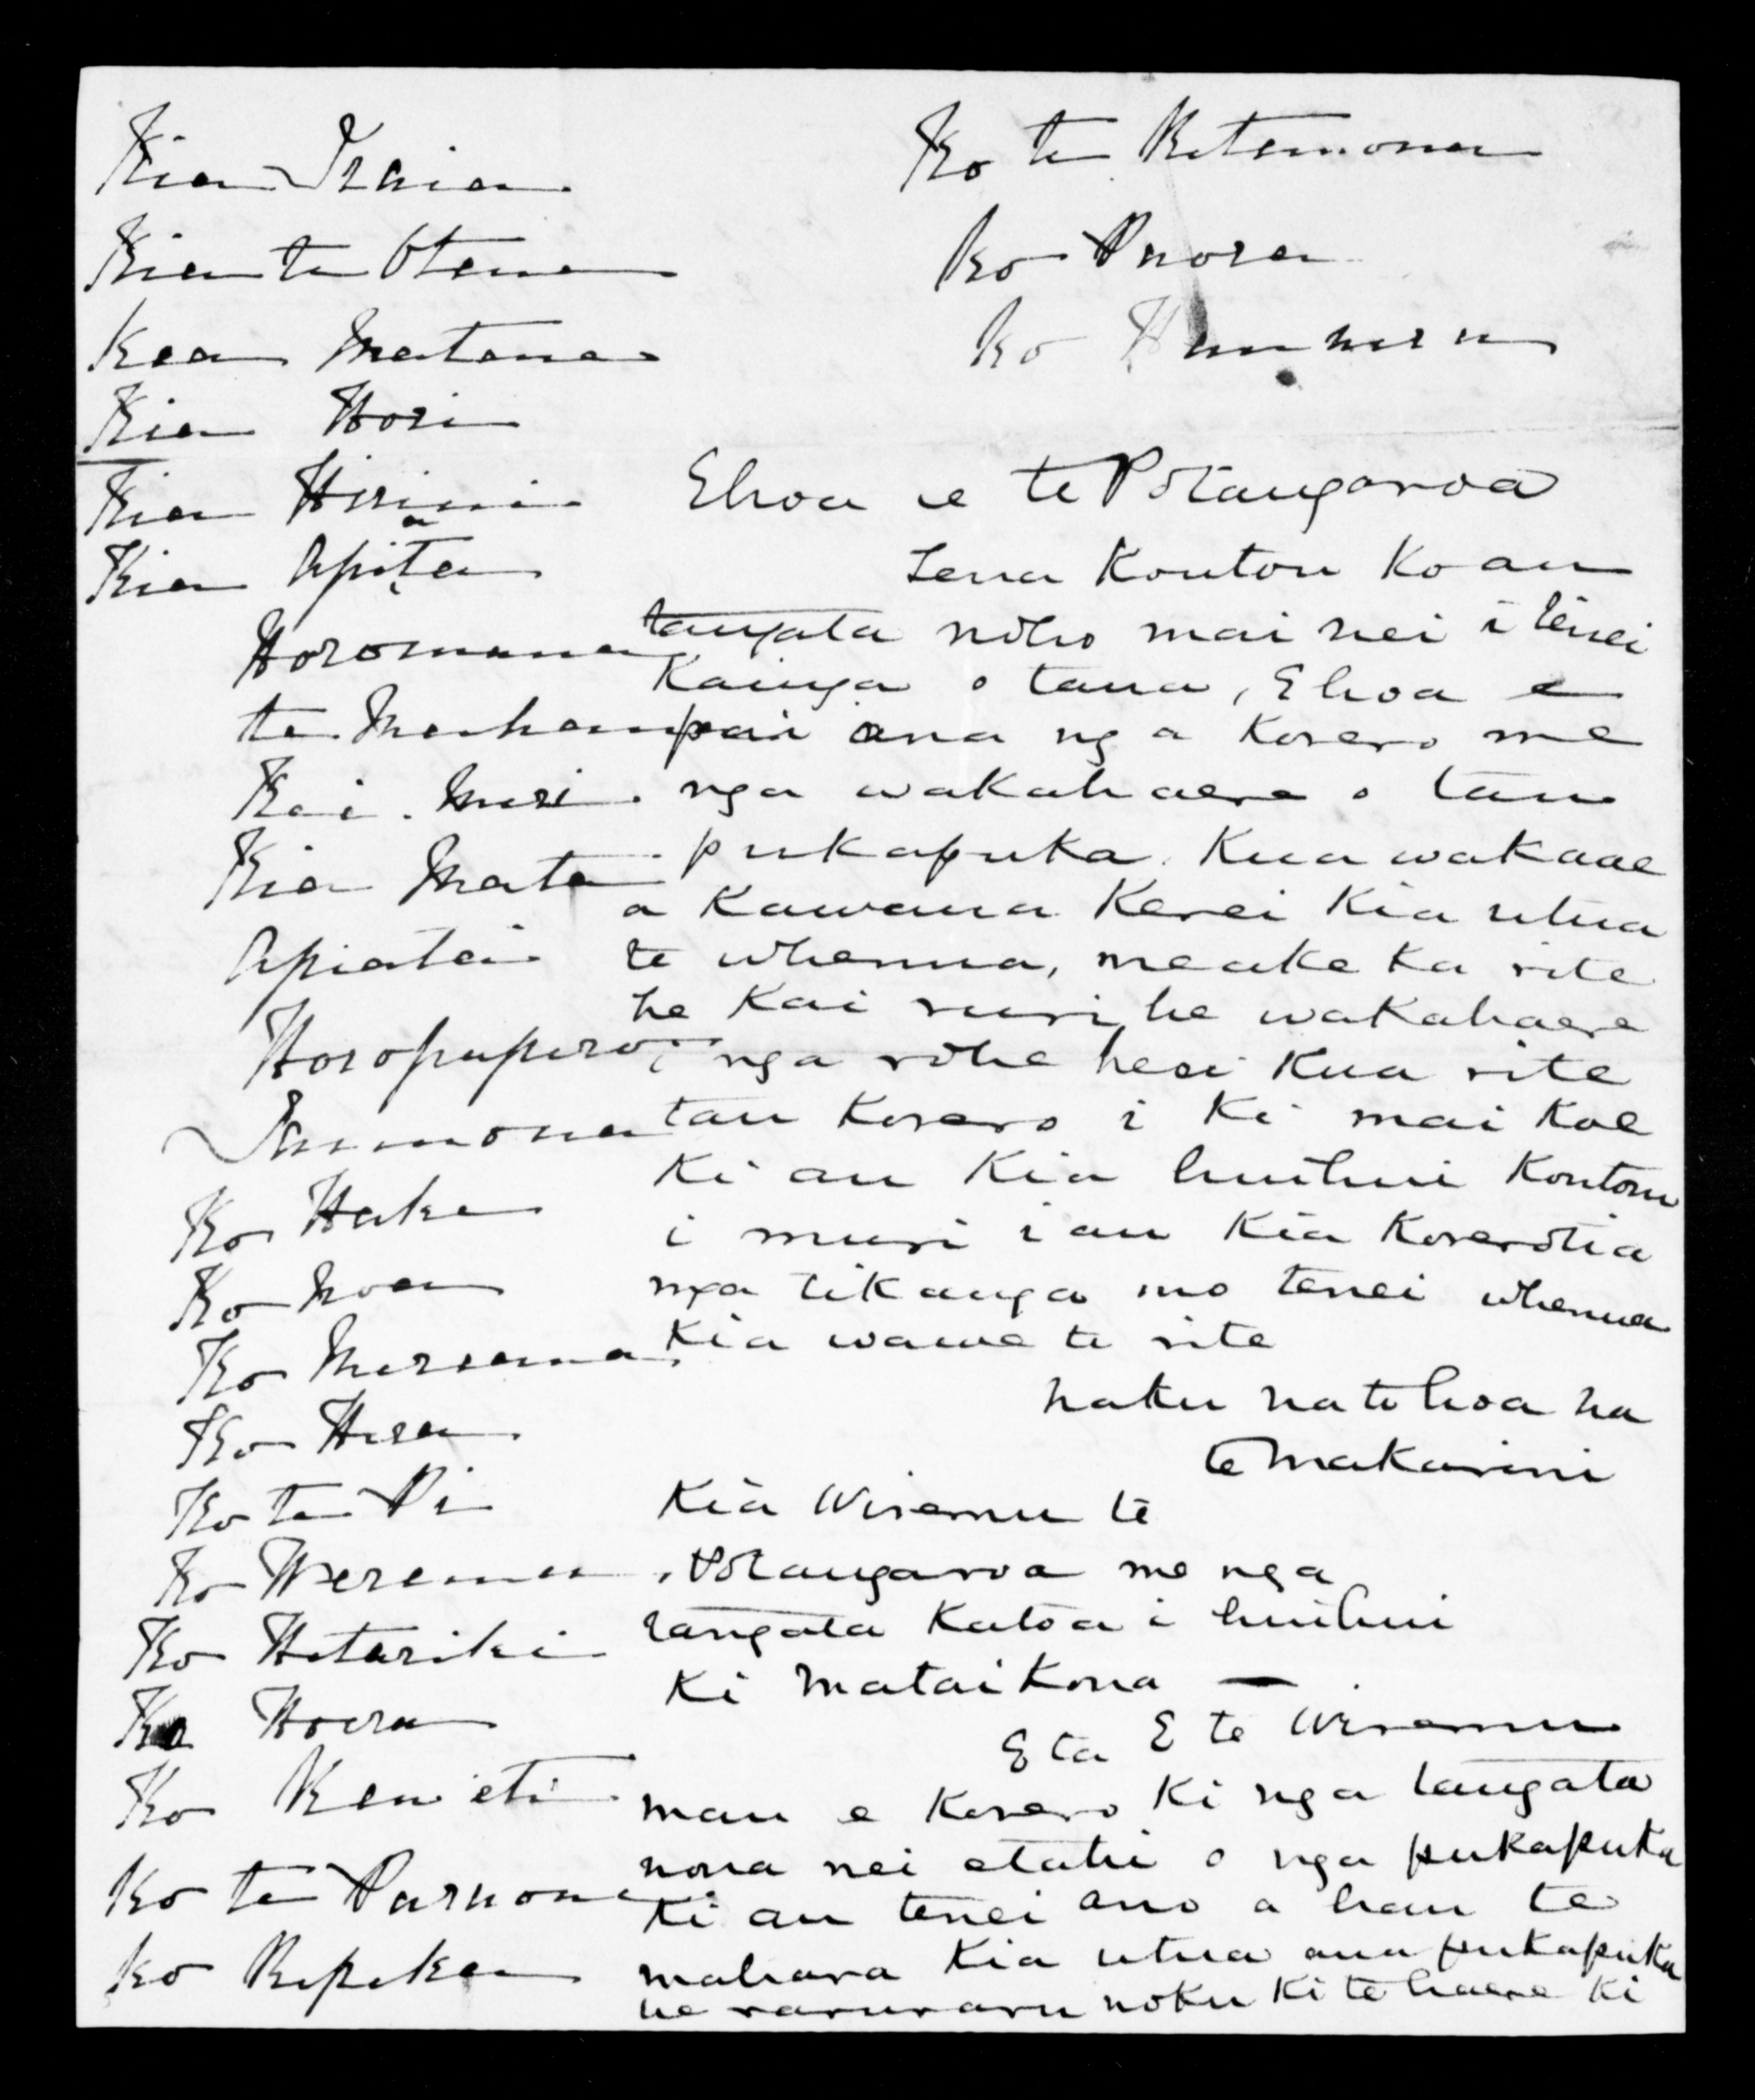 Kia Iraia
Kia te Otene
Kia Matene
Kia Hori
Kia Hirini
Kia Apita
Horomona
te Mahau
Kai Muri
Kia Mata
Apiata
Horopapera
Taumona
Ko Hake
Ko Noa
Ko Mereana
Ko Hera
Ko te Pi
Ko Weremu
Ko Hetariki
Ko Hoera
Ko Renieti
Ko te Paruona
Ko Ripeka
Ko te Retemona
Ko Puora
Ko
Ehoa e te Potangaroa
Tena Koutou Ko au
tangata noho mai nei i tenei
Kainga o taua, Ehoa e
pai ana nga Korero me
nga wakahaere o tau
pukapuka. Kua wakaae
a Kawana Kerei Kia utua
te whenua, meake ka rite
he Kai ruri, he wakahaere
i nga rohe heoi Kua rite
tau Korero i Ki mai Koe
Ki au Kia huihui Koutou
i muri i au Kia Korerotia
nga tikanga mo tenei whenua
Kia wawe te rite
naku na to hoa na
te Makarini
Kia Wiremu te
Potangaroa me nga
tangata Katoa i huihui
Ki Mataikona —
E ta E te Wiremu
mau e Korero Ki nga tangata
nona nei etahi o nga pukapuka
Ki au tenei ano a hau te
mahara Kia utua ana pukapuka
he raruraru noku Ki te haere Ki